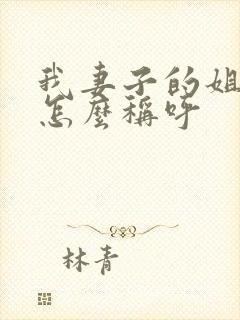 我妻子的姐
怎麼稱呼
林青